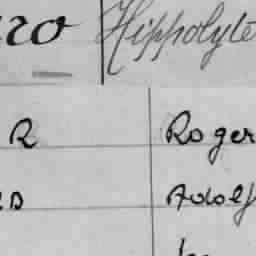 ro Hippolyte
R Roger
Adolf